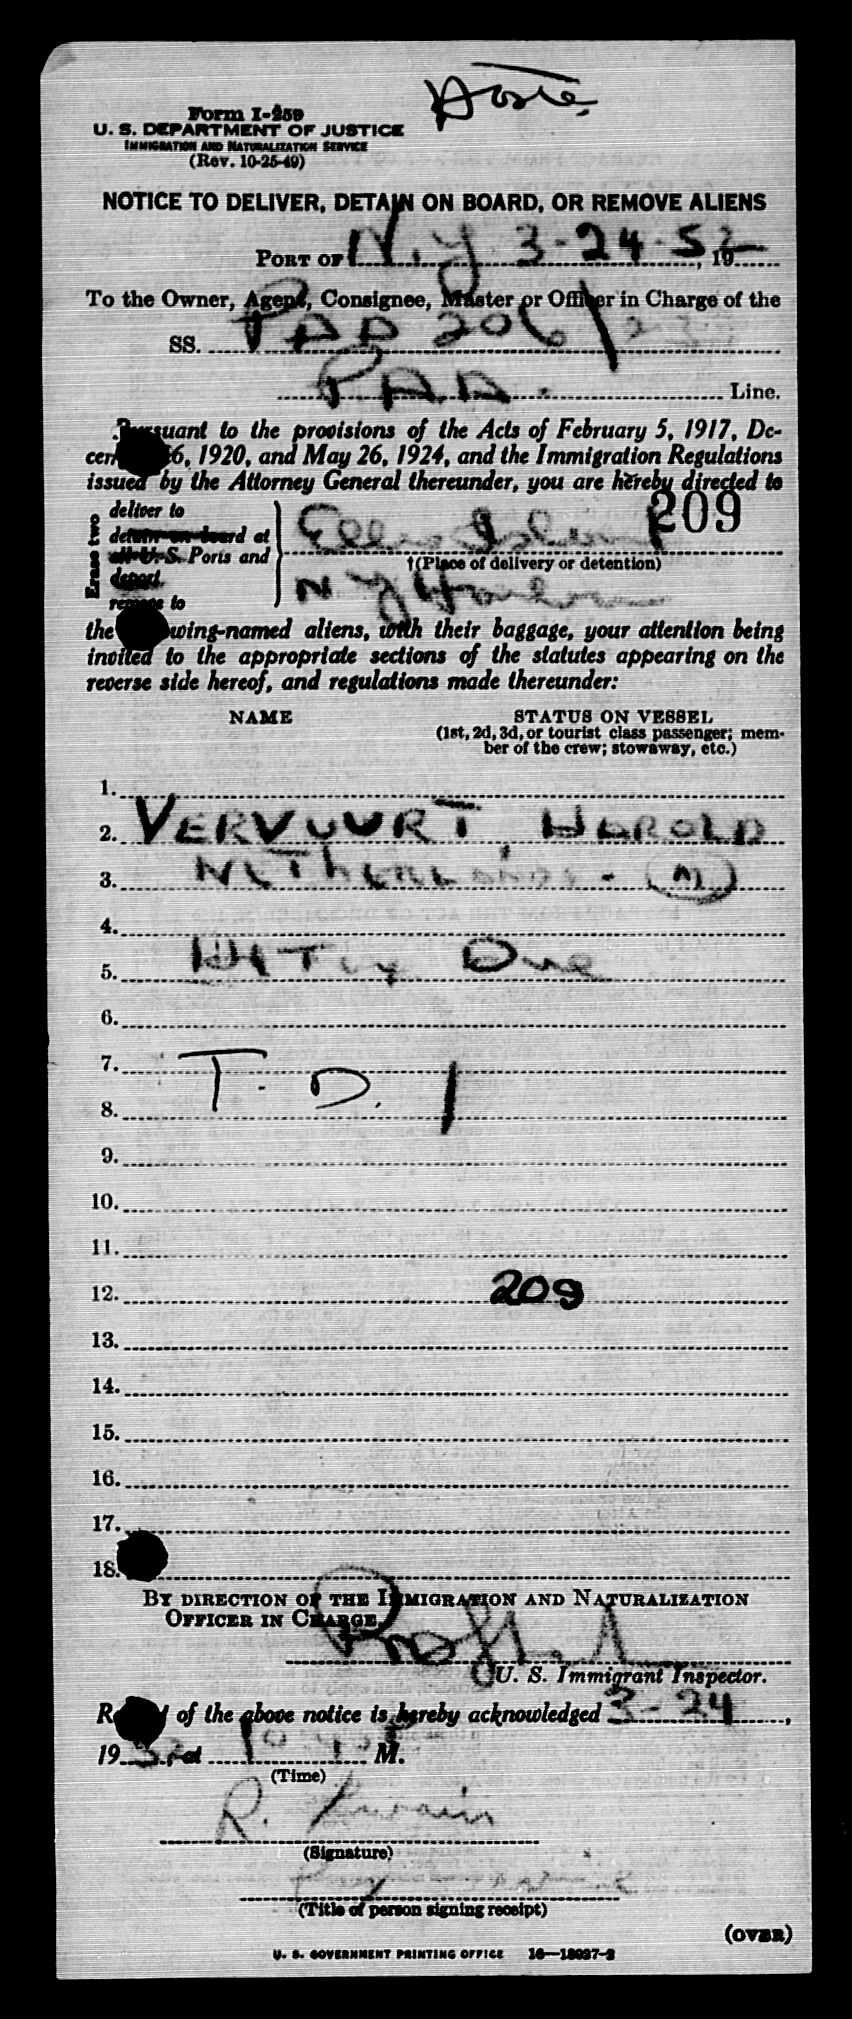 Form I-259
U. S. DEPARTMENT OF JUSTICE
IMMIGRATION AND NATURALIZATION SERVICE
(Rev. 10-25-49)
NOTICE TO DELIVER, DETAIN ON BOARD, OR REMOVE ALIENS
PORT OF N.Y 3-24-52, 19
To the Owner, Agent, Consignee, Master or Officer in Charge of the
SS. PAA 206/
PAA. Line.
Pursuant to the provisions of the Acts of February 5, 1917, De-
26, 1920, and May 26, 1924, and the Immigration Regulations
issued by the Attorney General thereunder, you are hereby directed to
209
Erase two
deliver to
detain on board at
all U. S. Ports and
deport
remove to
Ellis Island
†(Place of delivery or detention)
N Y Harbor
the following-named aliens, with their baggage, your attention being
invited to the appropriate sections of the statutes appearing on the
reverse side hereof, and regulations made thereunder:
NAME STATUS ON VESSEL
(1st, 2d, 3d, or tourist class passenger; mem-
ber of the crew; stowaway, etc.)
1.
2. VERVUURT, HAROLD
3. Netherlands - (M)
4.
5. One
6.
7. T. D. 1
8.
9.
10.
11.
12. 209
13.
14.
15.
16.
17.
18.
BY DIRECTION OF THE IMMIGRATION AND NATURALIZATION
OFFICER IN CHARGE.
U. S. Immigrant Inspector.
of the above notice is hereby acknowledged 3-24,
1952, at M.
(Time)
R.
(Signature)
(Title of person signing receipt)
(OVER)
U. S. GOVERNMENT PRINTING OFFICE 16—18027-2